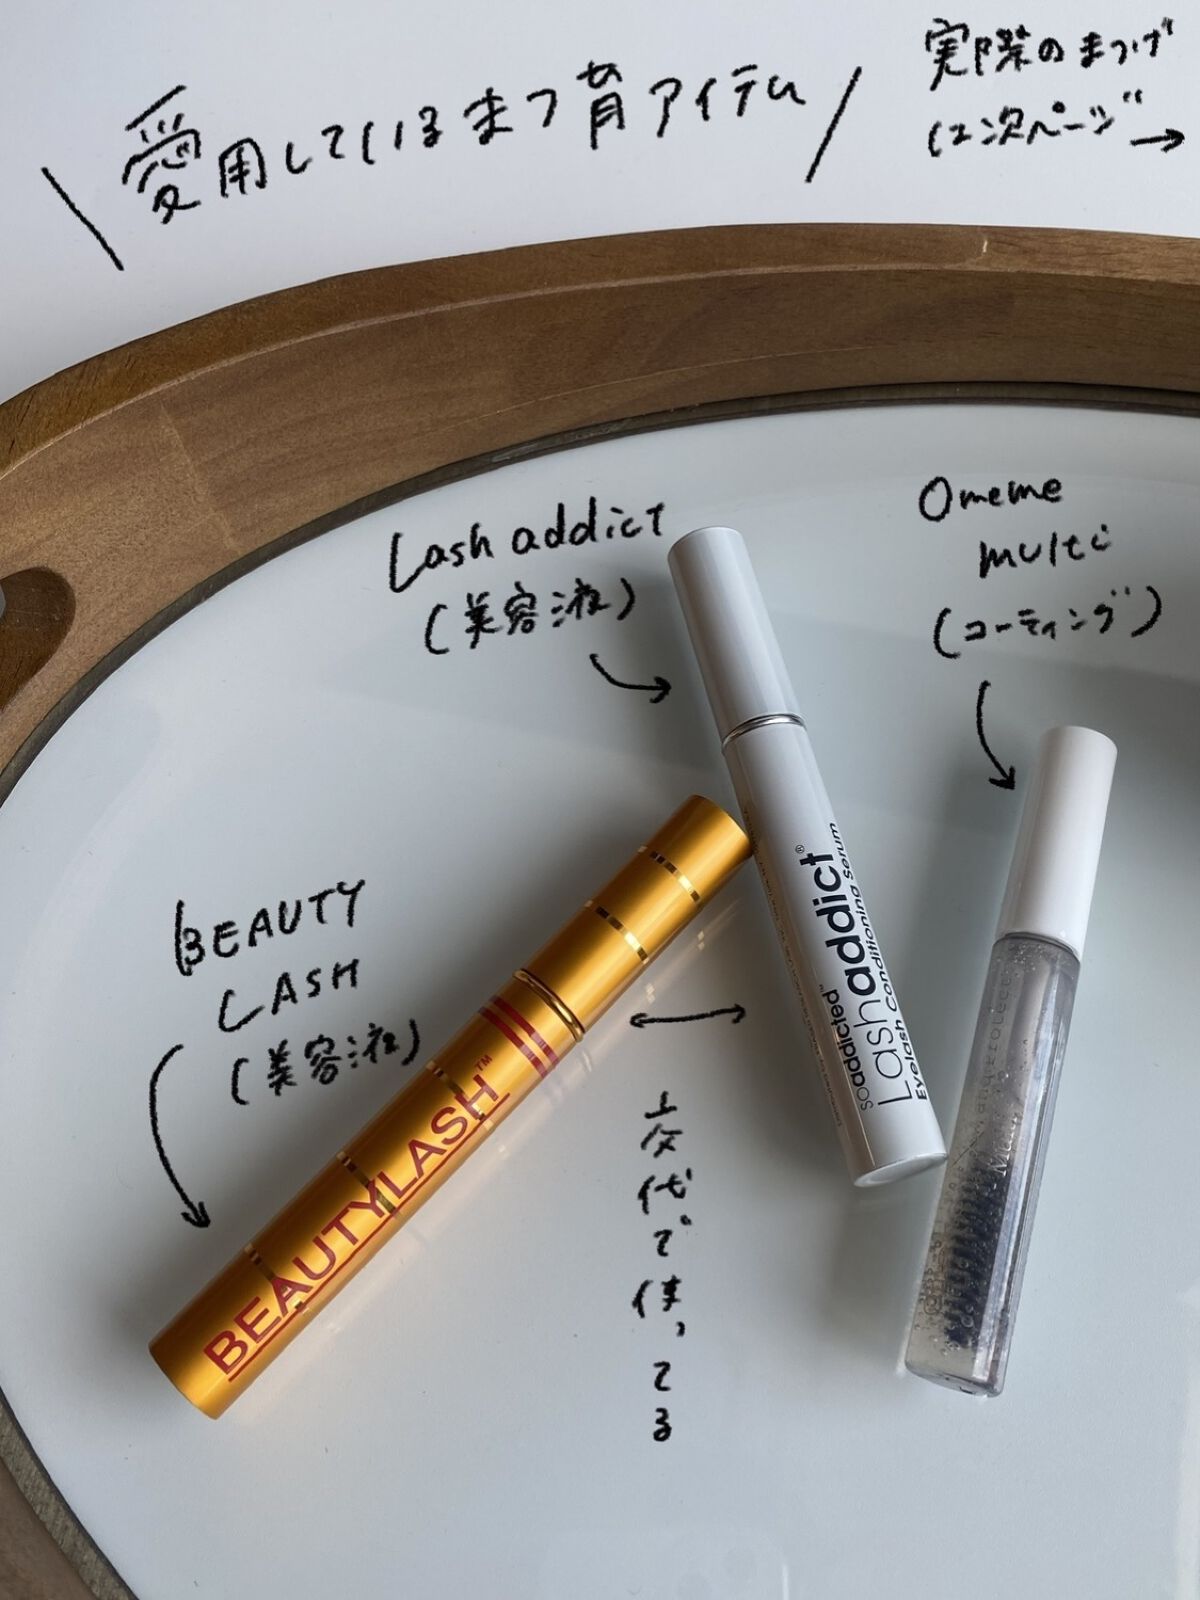 愛用しているまつ育アイテム
実際のまつげ
は次ページ→
Lash addict
(美容液)
Omeme
multi
(コーティング)
BEAUTY
LASH
(美容液)
交代で使ってる
BEAUTYLASH™
soaddicted™
Lashaddict®
Eyelash Conditioning Serum